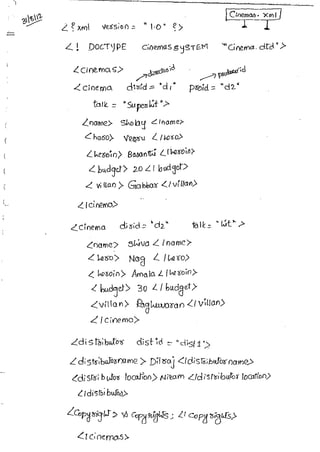 31/8/12
Cinemas. xml
<? xml version = "1.0" ?>
<! DOCTYPE cinemas SYSTEM "Cinema.dtd">
<cinemas>
<cinema dirsid = "d1" prsid = "d2"
talk = "Superhit">
<name> Sholay </name>
<hero> Veeru </hero>
<heroin> Basanti </heroin>
<budget> 20 </budget>
<villan> Gabbar </villan>
</cinema>
<cinema dirsid = "d2" talk = "hit">
<name> Shiva </name>
<hero> Nag </hero>
<heroin> Amala </heroin>
<budget> 30 </budget>
<villan> Raghuvaran </villan>
</cinema>
<distributor distid = "dist1">
<distributorname> Dilraj </distributorname>
<distributor location> Nizam </distributor location>
</distributor>
<copyright> vs copyrights; </copyrights>
</cinemas>